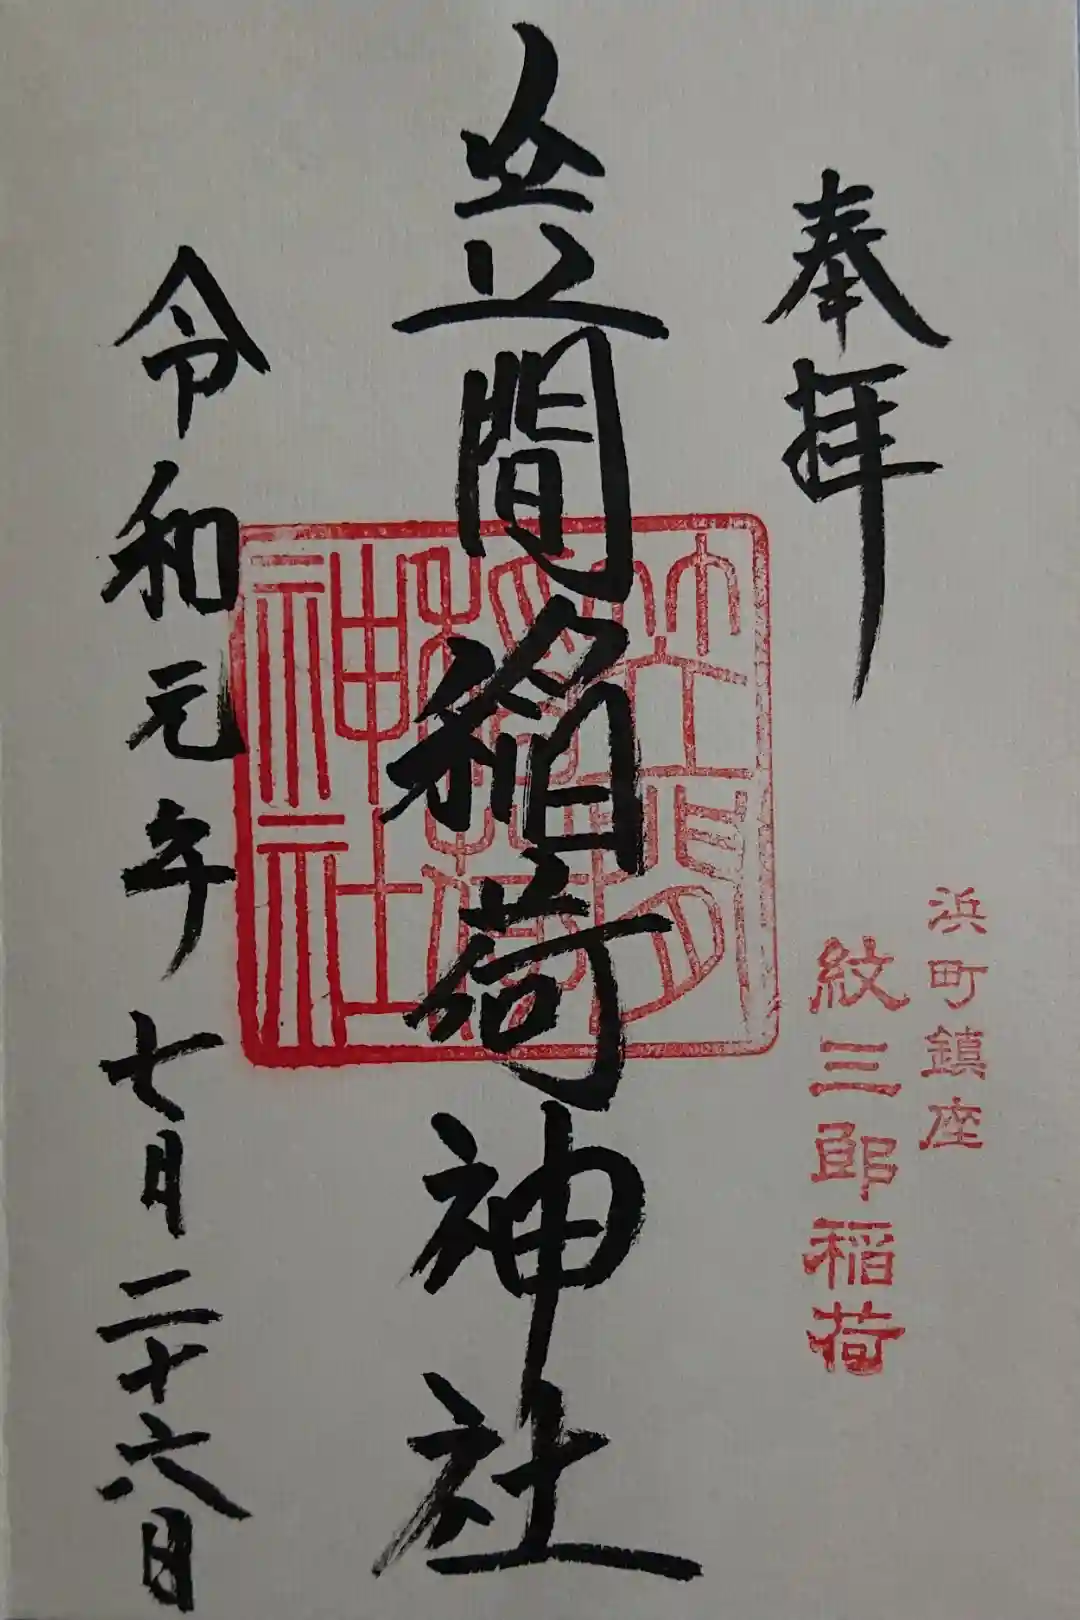 奉拝
浜町鎮座
紋三郎稲荷
笠間稲荷神社
笠間
稲荷
神社
令和元年七月二十六日